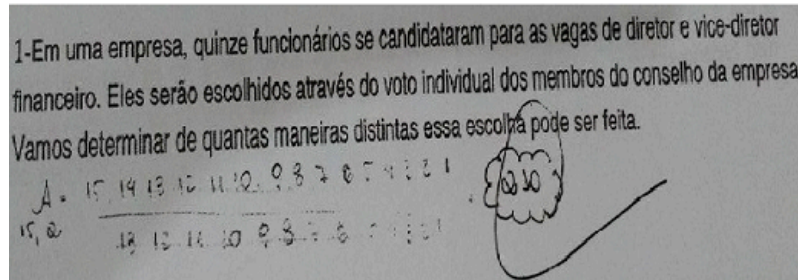 1-Em uma empresa, quinze funcionários se candidataram para as vagas de diretor e vice-diretor
financeiro. Eles serão escolhidos através do voto individual dos membros do conselho da empresa
Vamos determinar de quantas maneiras distintas essa escolha pode ser feita.
A = 15 14 13 12 11 10 9 8 7 6 5 4 3 2 1
15, 2
13 12 11 10 9 8 7 6